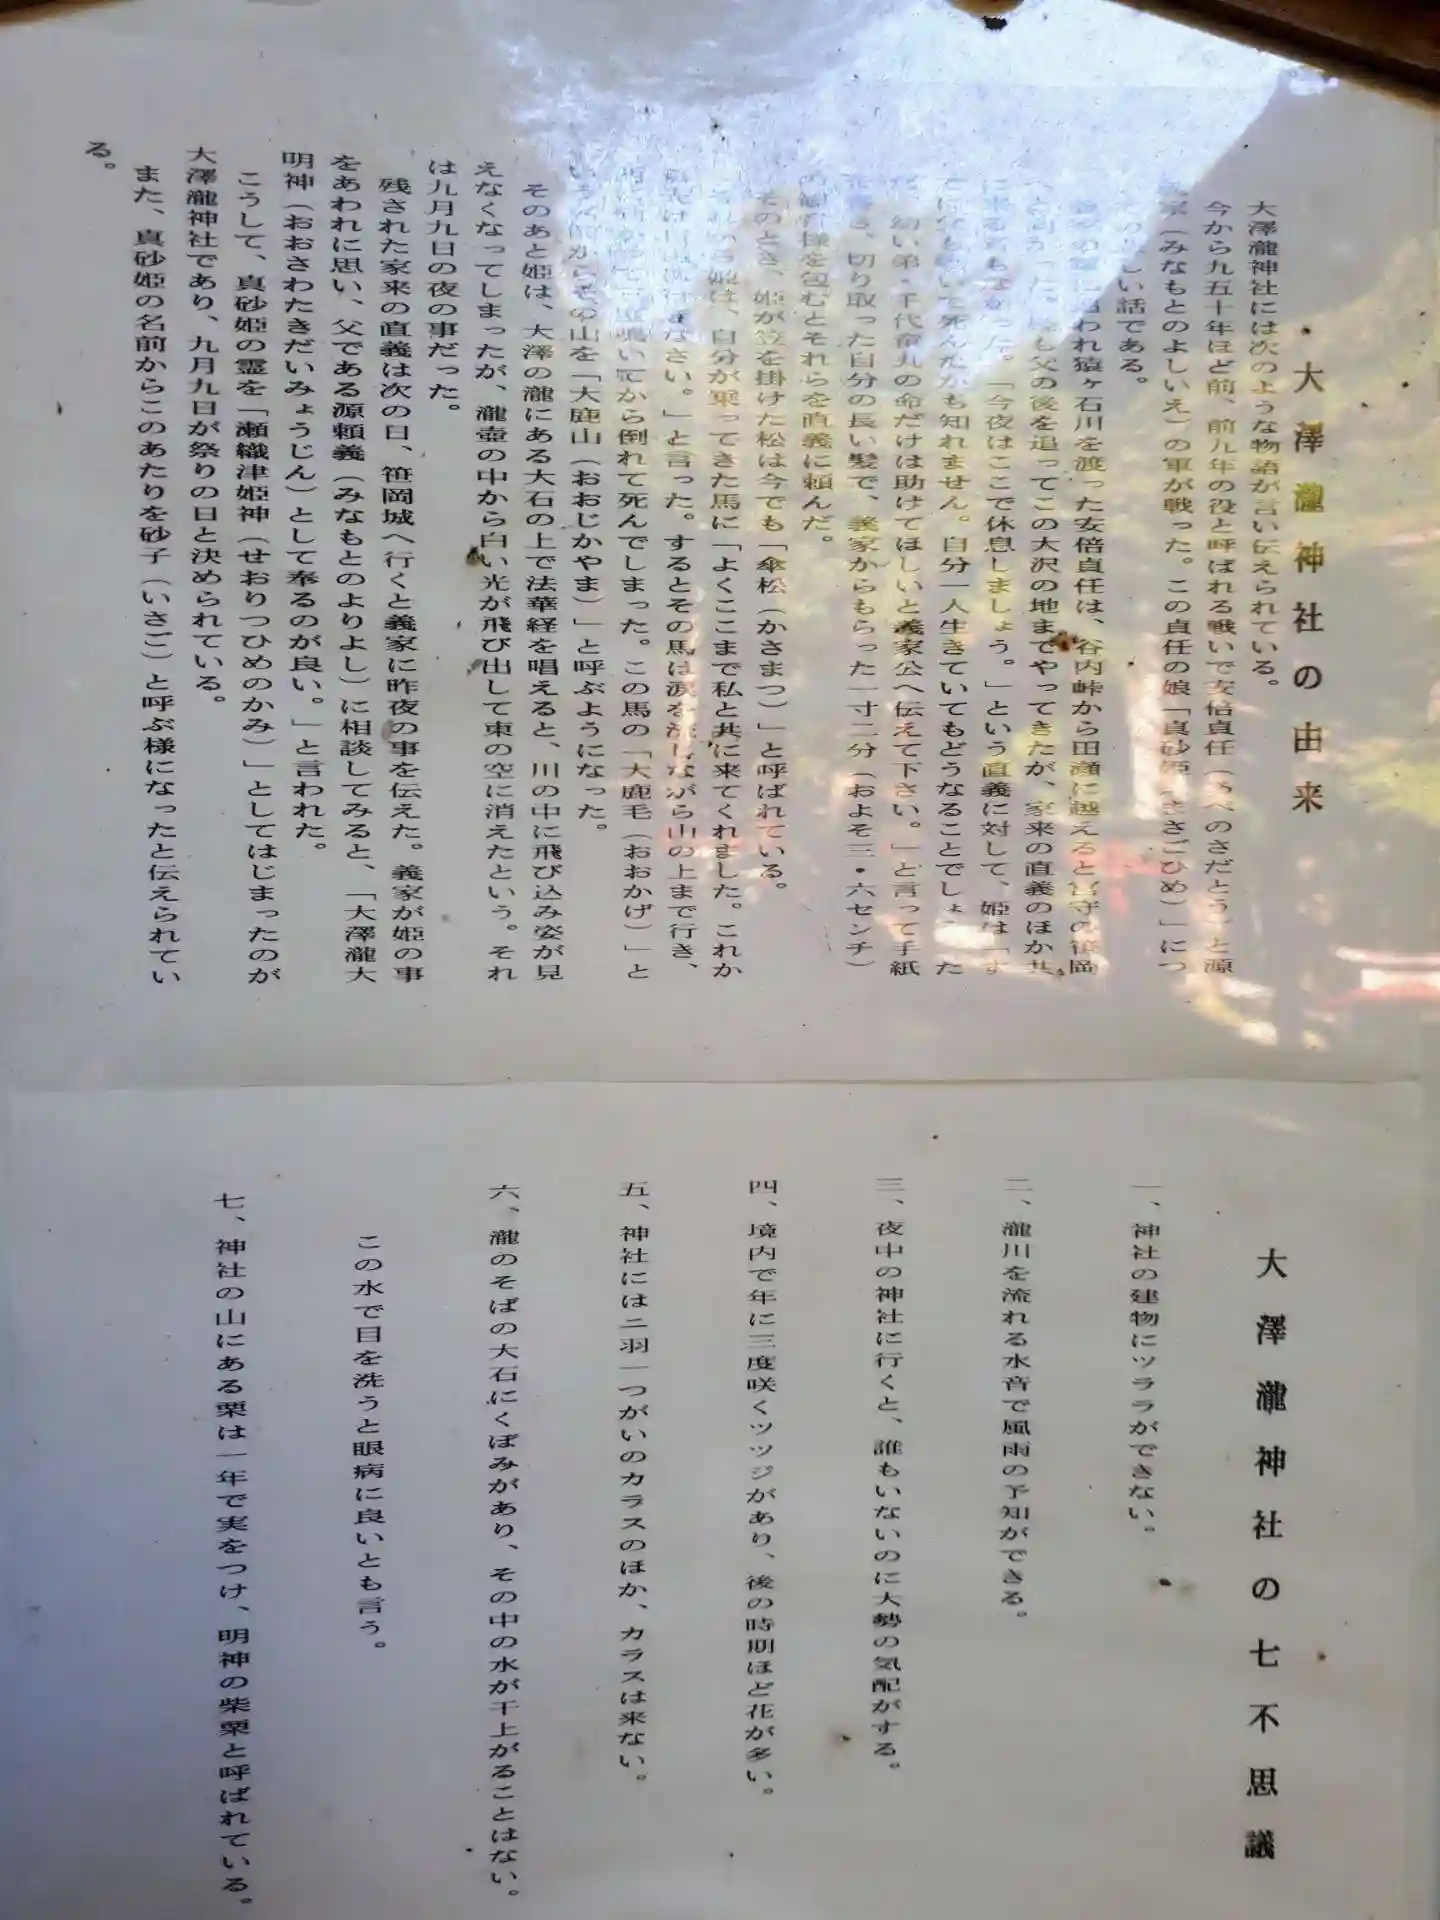 大澤瀧神社の由来
大澤瀧神社には次のような物語が言い伝えられている。
今から九五十年ほど前、前九年の役と呼ばれる戦いで安倍貞任(あべのさだとう)と源
(みなもとのよしいえ)の軍が戦った。この貞任の娘「真砂姫(まさごひめ)」につ
い話である。
われ猿ヶ石川を渡った安倍貞任は、谷内峠から田瀬に越えると宮守の笹岡
も父の後を追ってこの大沢の地までやってきたが、家来の直義のほか共
「今夜はここで休息しましょう。」という直義に対して、姫は「す
て死んだかも知れません。自分一人生きていてもどうなることでしょ た
い弟・千代童丸の命だけは助けてほしいと義家公へ伝えて下さい。」と言って手紙
、切り取った自分の長い髪で、義家からもらった一寸二分(およそ三・六センチ)
様を包むとそれらを直義に頼んだ。
そのとき、姫が笠を掛けた松は今でも「傘松(かさまつ)」と呼ばれている。
は、自分が乗ってきた馬に「よくここまで私と共に来てくれました。これか
なさい。」と言った。するとその馬は涙を流しながら山の上まで行き、
鳴いてから倒れて死んでしまった。この馬の「大鹿毛(おおかげ)」と
いう名前からその山を「大鹿山(おおじかやま)」と呼ぶようになった。
そのあと姫は、大澤の瀧にある大石の上で法華経を唱えると、川の中に飛び込み姿が見
えなくなってしまったが、瀧壺の中から白い光が飛び出して東の空に消えたという。それ
は九月九日の夜の事だった。
残された家来の直義は次の日、笹岡城へ行くと義家に昨夜の事を伝えた。義家が姫の事
をあわれに思い、父である源頼義(みなもとのよりよし)に相談してみると、「大澤瀧大
明神(おおさわたきだいみょうじん)として奉るのが良い。」と言われた。
こうして、真砂姫の霊を「瀬織津姫神(せおりつひめのかみ)」としてはじまったのが
大澤瀧神社であり、九月九日が祭りの日と決められている。
また、真砂姫の名前からこのあたりを砂子(いさご)と呼ぶ様になったと伝えられてい
る。
大澤瀧神社の七不思議
一、神社の建物にツララができない。
二、瀧川を流れる水音で風雨の予知ができる。
三、夜中の神社に行くと、誰もいないのに大勢の気配がする。
四、境内で年に三度咲くツツジがあり、後の時期ほど花が多い。
五、神社には二羽一つがいのカラスのほか、カラスは来ない。
六、瀧のそばの大石にくぼみがあり、その中の水が干上がることはない。
この水で目を洗うと眼病に良いとも言う。
七、神社の山にある栗は一年で実をつけ、明神の柴栗と呼ばれている。